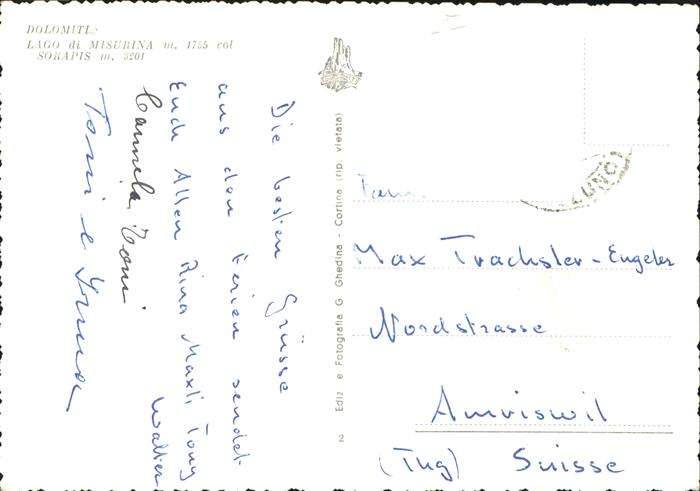 DOLOMITI:
LAGO di MISURINA m. 1755 col
SORAPIS m. 3201
Die besten Grüsse
aus den Ferien sendet
Euch Allen Rina Maxli Tony
Walter
Carmela Toni
Toni e
2 Ediz e Fotografia G Ghedina - Cortina (rip vietata)
Fam.
Max Trachsler-Engeler
Nordstrasse
Amriswil
(Tug) Suisse